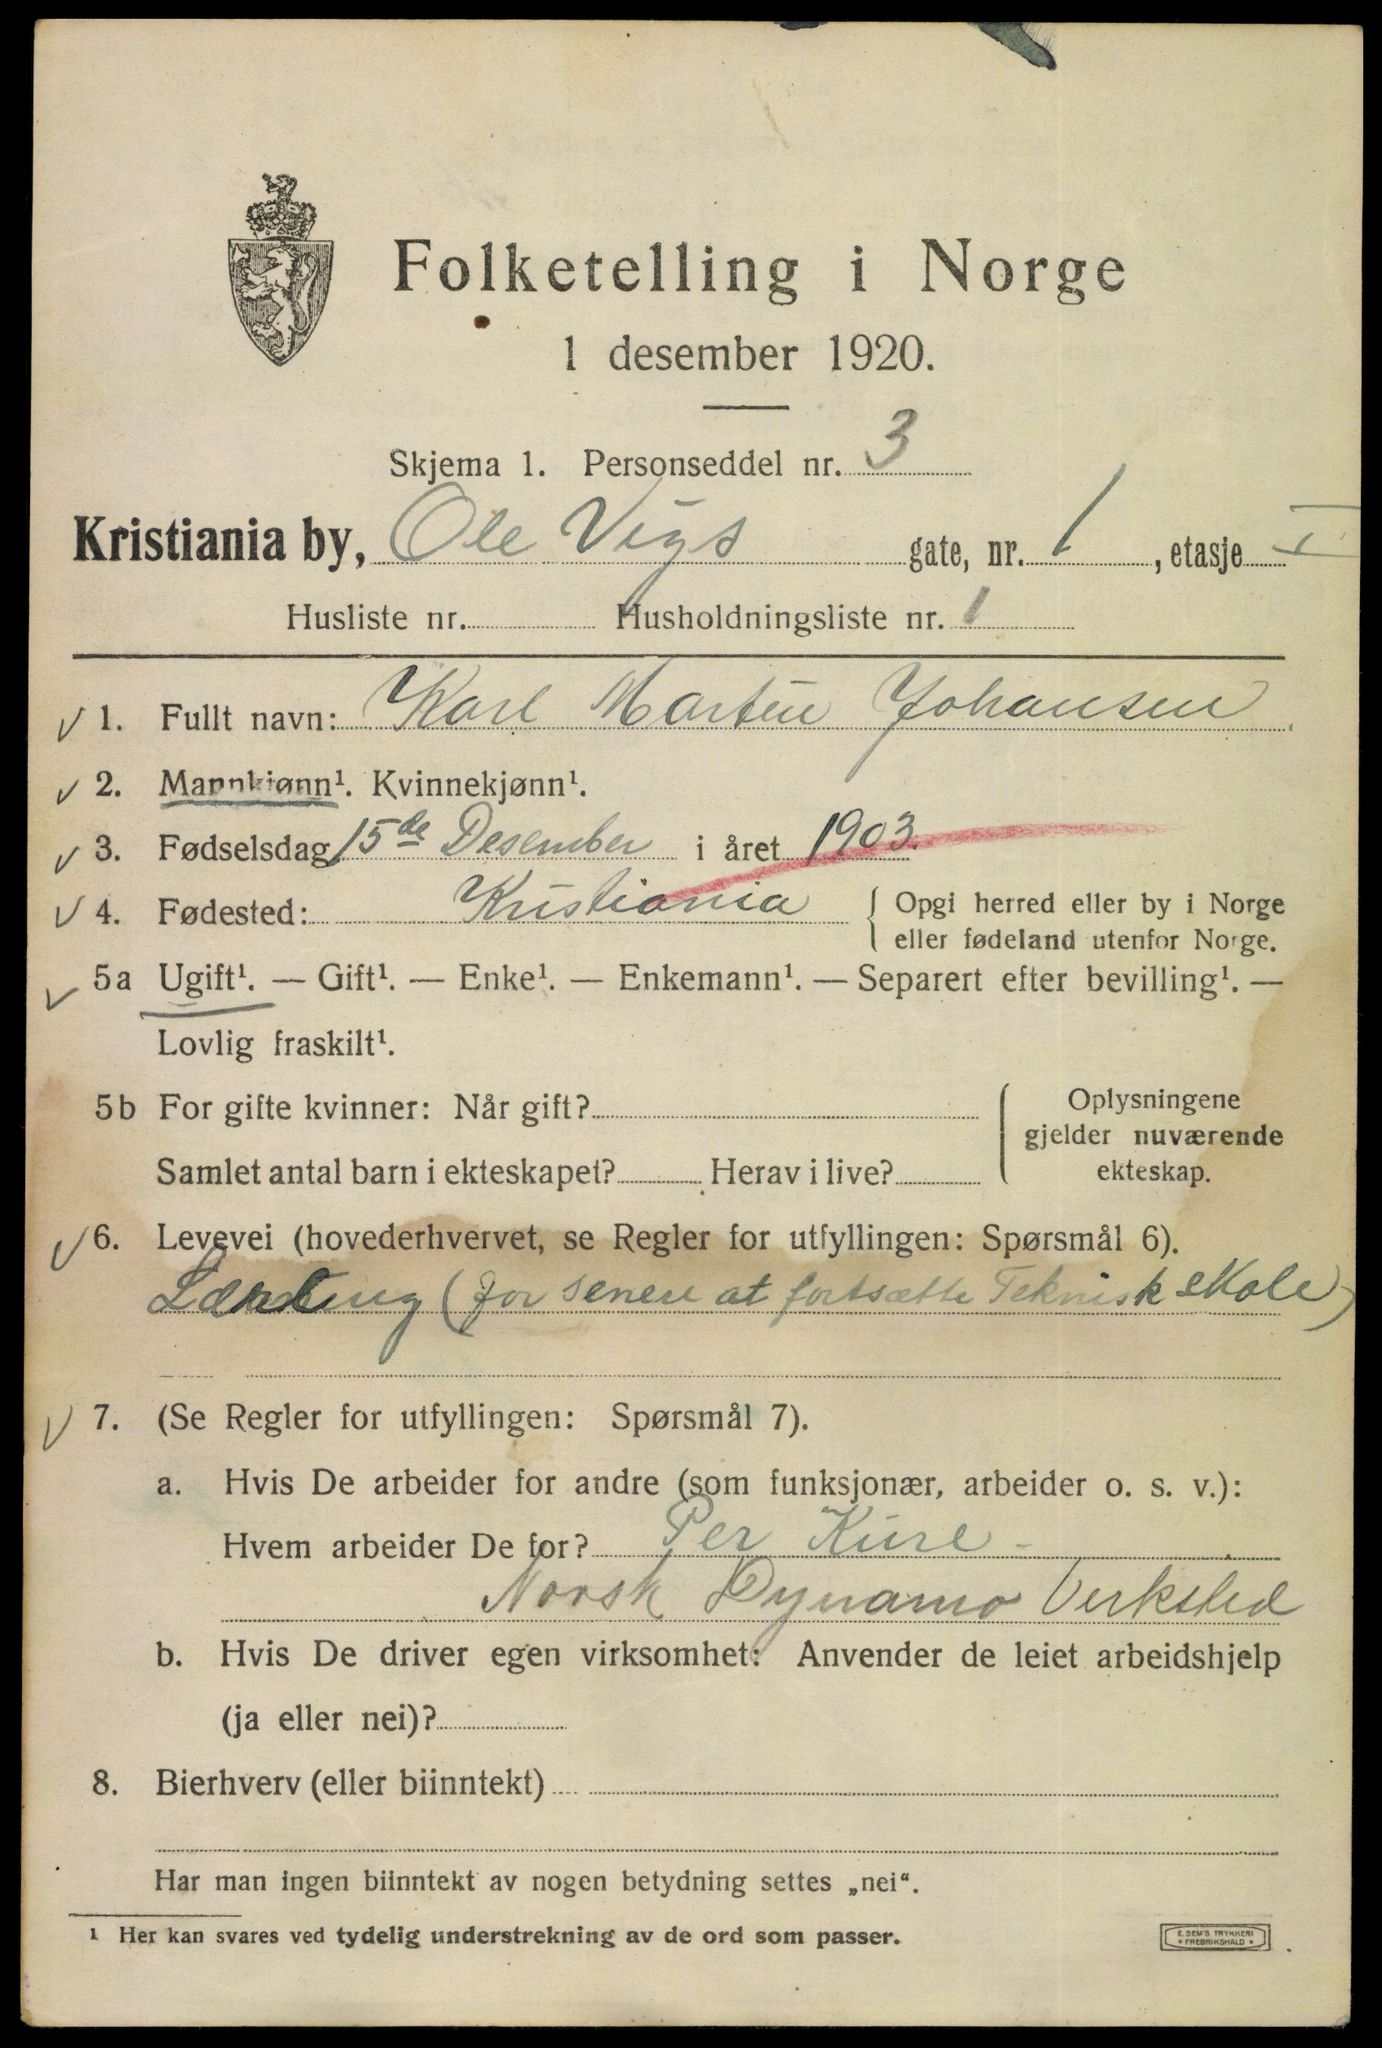 Folketelling i Norge
1 desember 1920.
Skjema 1. Personseddel nr. 3
Kristiania by, Ole Vigs gate, nr. 1, etasje I
Husliste nr. Husholdningsliste nr. 1
1. Fullt navn: Karl Martin Johansen
2. Mannkjønn¹. Kvinnekjønn¹.
3. Fødselsdag 15de Desember i året 1903.
4. Fødested: Kristiania { Opgi herred eller by i Norge
eller fødeland utenfor Norge.
5a Ugift¹. — Gift¹. — Enke¹. — Enkemann¹. — Separert efter bevilling¹. —
Lovlig fraskilt¹.
5b For gifte kvinner: Når gift?
Samlet antal barn i ekteskapet? Herav i live?
{ Oplysningene
gjelder nuværende
ekteskap.
6. Levevei (hovederhvervet, se Regler for utfyllingen: Spørsmål 6).
Lærling (for senere at fortsætte Teknisk skole)
7. (Se Regler for utfyllingen: Spørsmål 7).
a. Hvis De arbeider for andre (som funksjonær, arbeider o. s. v.):
Hvem arbeider De for? Per Kure -
Norsk Dynamo Verksted
b. Hvis De driver egen virksomhet: Anvender de leiet arbeidshjelp
(ja eller nei)?
8. Bierhverv (eller biinntekt)
Har man ingen biinntekt av nogen betydning settes „nei“.
¹ Her kan svares ved tydelig understrekning av de ord som passer.
E. SEM'S TRYKKERI
* FREDRIKSHALD *